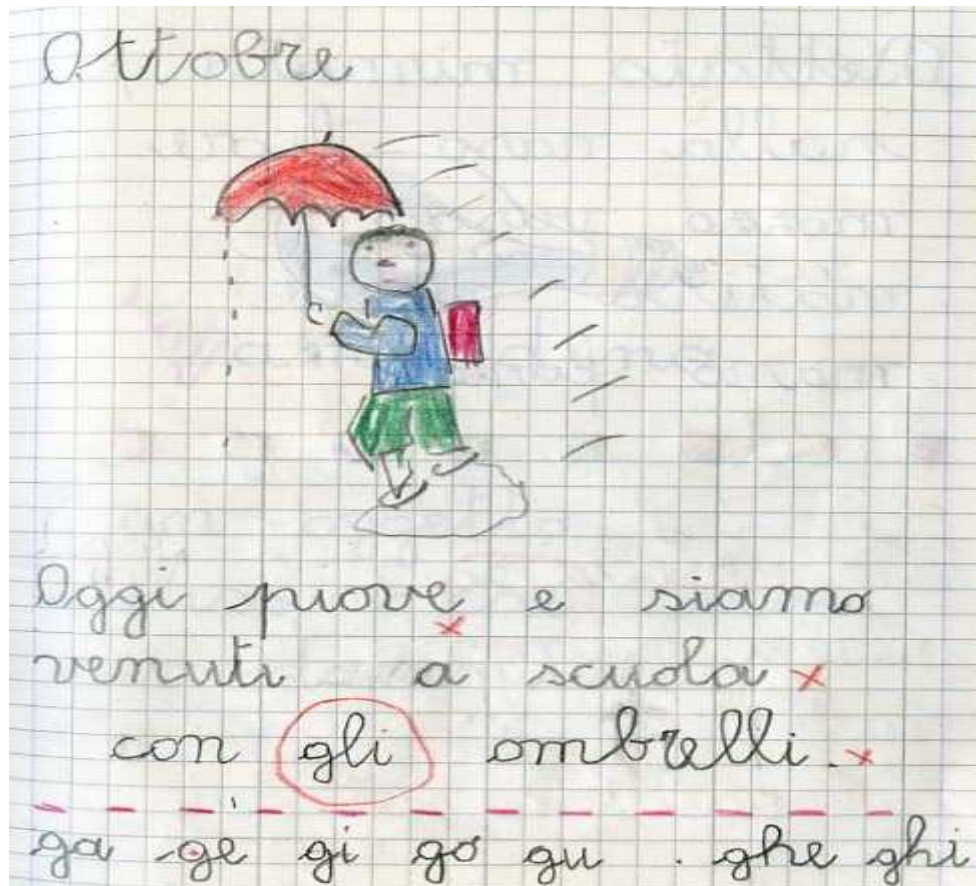 Ottobre
Oggi piove e siamo
venuti a scuola
con gli ombrelli.
ga ge gi go gu . ghe ghi